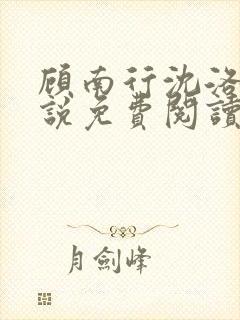 顾南行沈洛
說免費閱讀
月劍峰